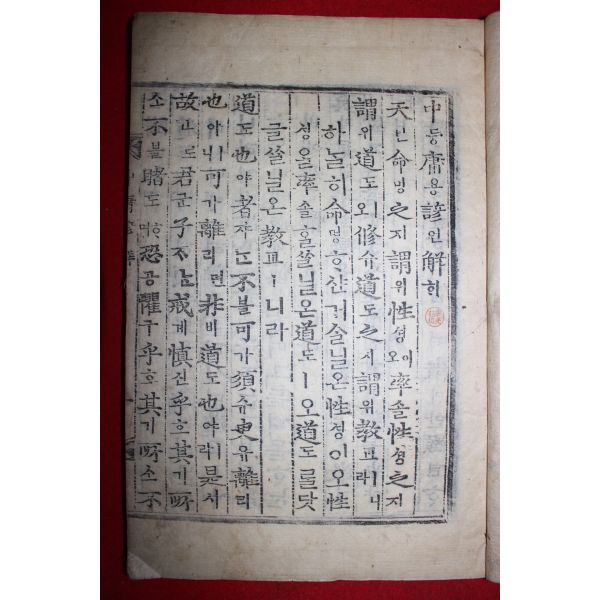 中듕庸용諺언解ᄒᆡ
天텬命명之지謂위性셩이오率솔性셩之지
謂위道도ㅣ오修슈道도之지謂위敎교ㅣ니라
하ᄂᆞᆯ히命명ᄒᆞ샨거슬닐온性셩이오性
셩을率솔ᄒᆞᆯᄊᆞᆯ닐온道도ㅣ오道도ᄅᆞᆯ닷
글ᄊᆞᆯ닐온敎교ㅣ니라
道도也야者쟈ᄂᆞᆫ不블可가須슈臾유離리
也야ㅣ니可가離리면非비道도也야ㅣ라是시
故고로君군子ᄌᆞᄂᆞᆫ戒계愼신乎호其기所
소不블睹도ᄒᆞ며恐공懼구乎호其기所소不